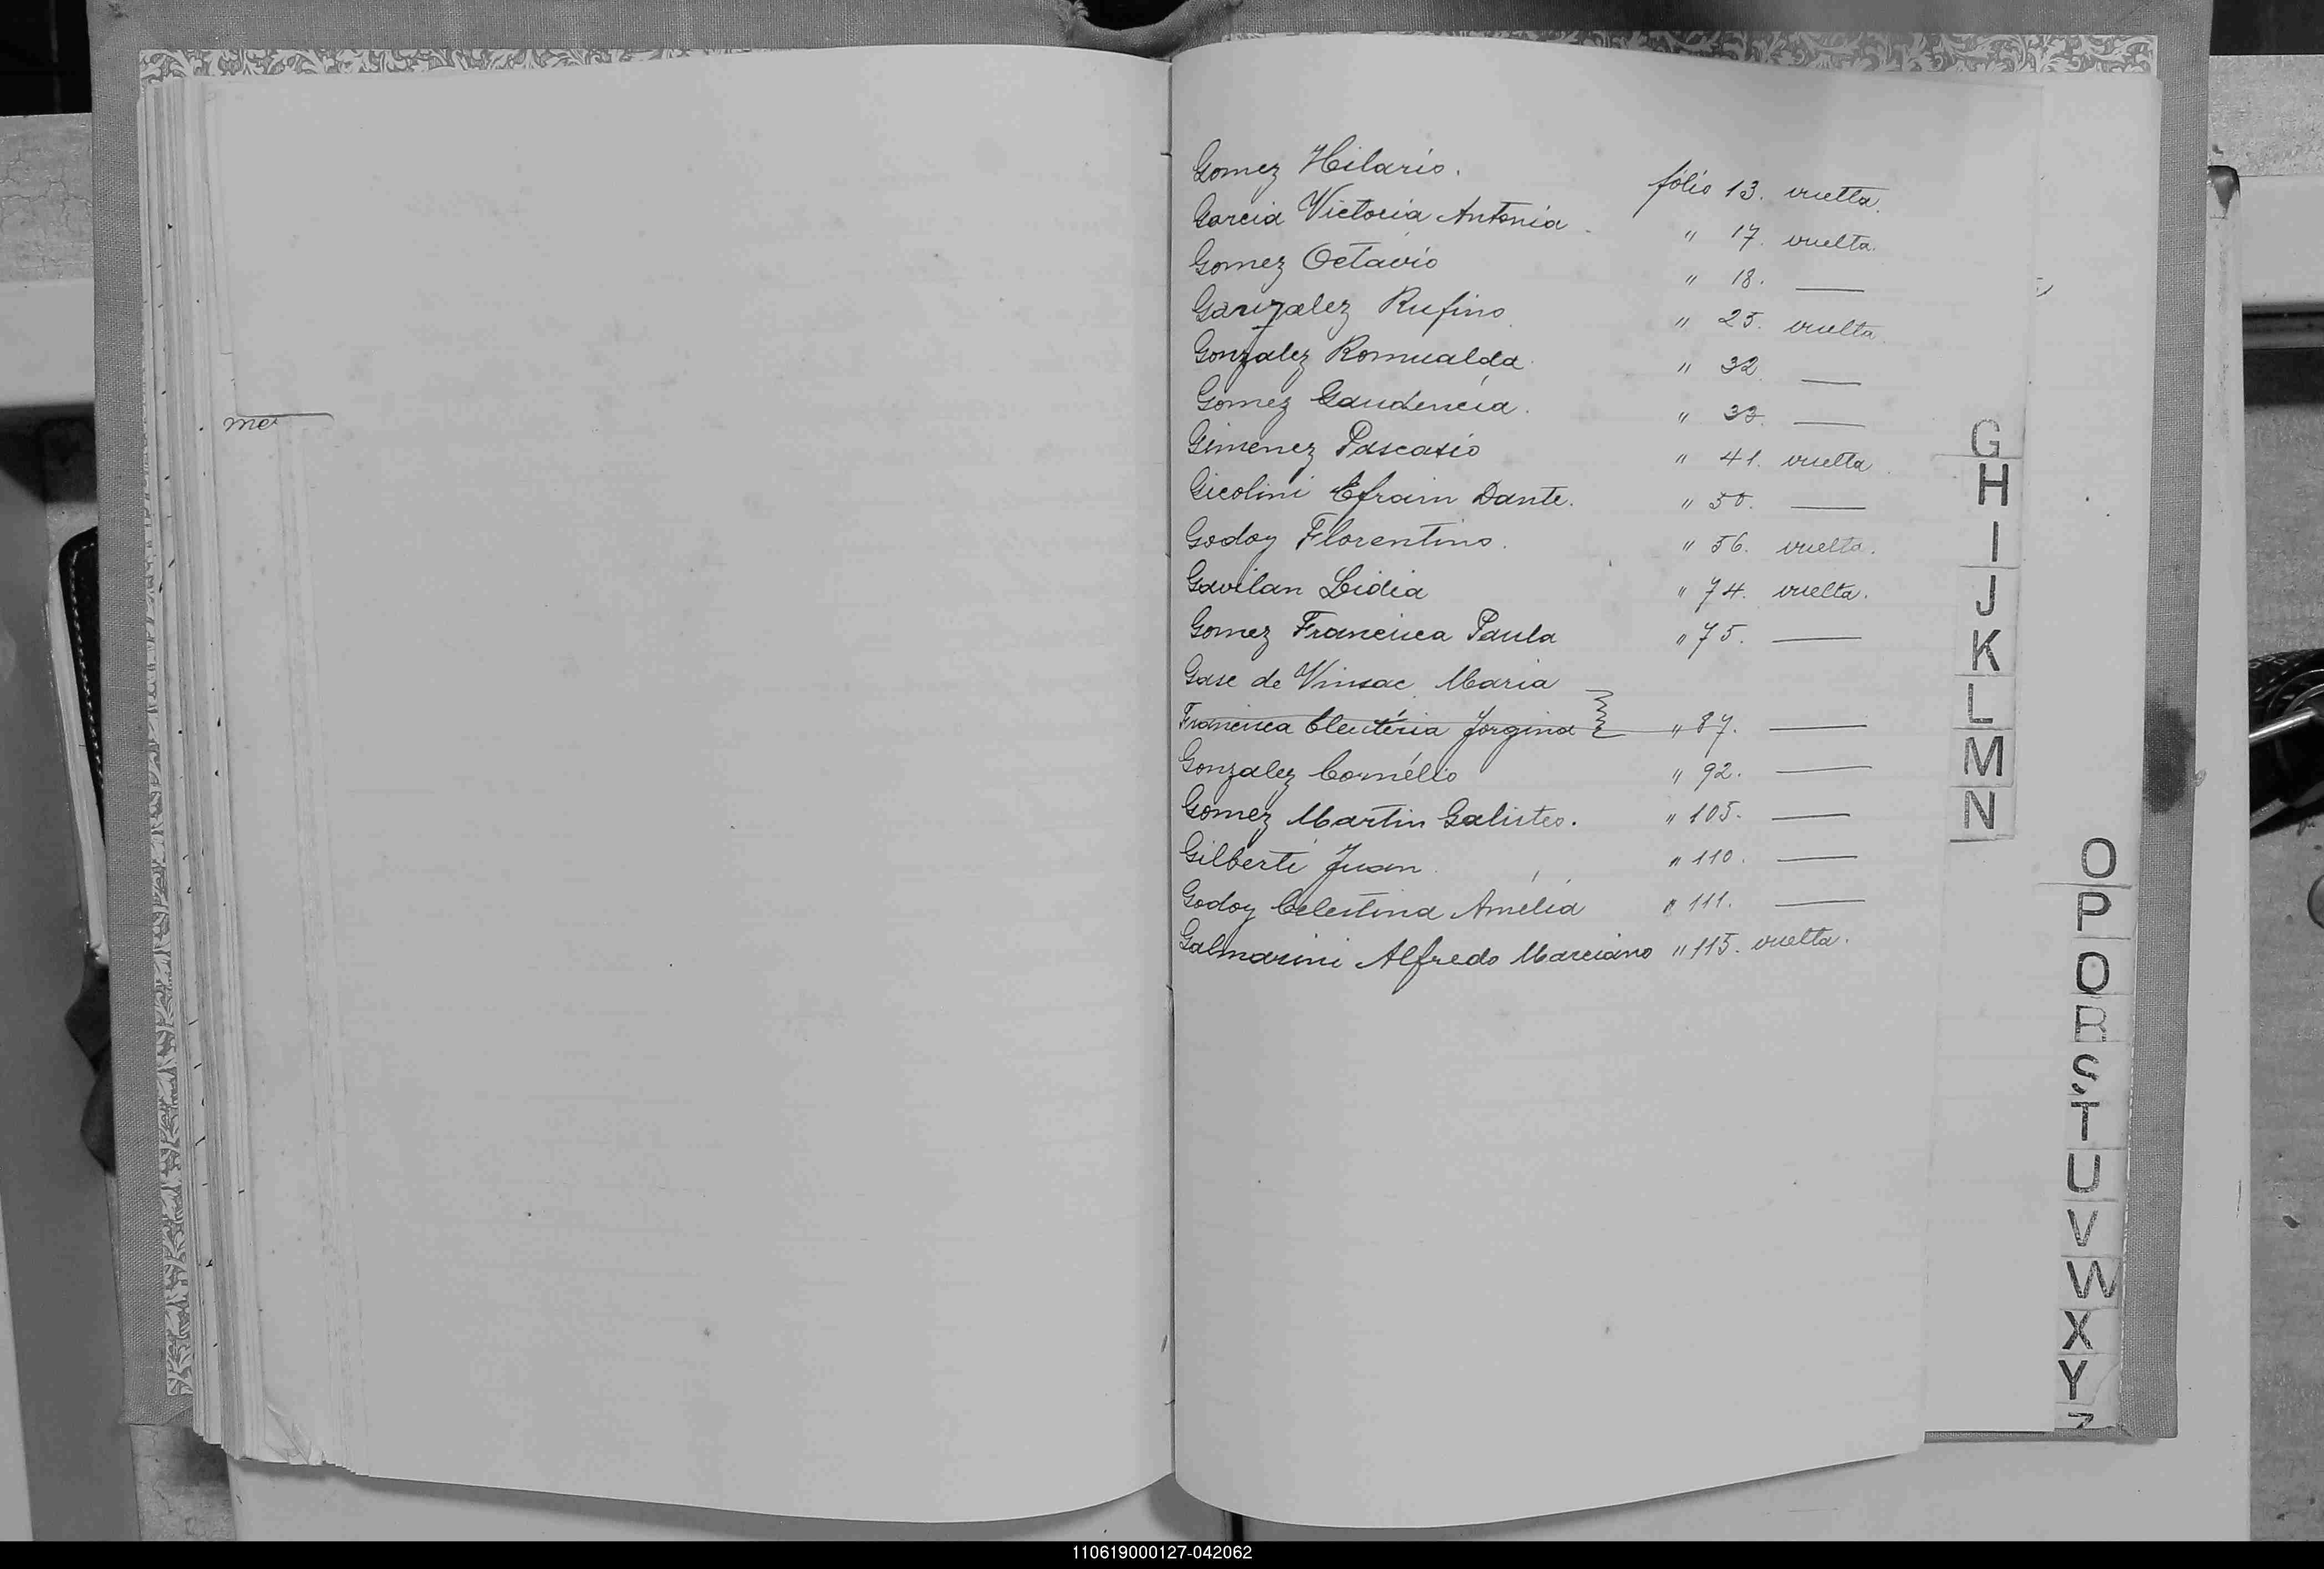 me
Gomez Hilario. folio 13. vuelta.
Garcia Victoria Antonia " 17. vuelta.
Gomez Octavio " 18. —
Ganzalez Rufino " 25. vuelta
Gonzalez Romualda " 32 —
Gomez Gaudencia. " 33. —
Gimenez Pascasio " 41. vuelta
Gicolini Efrain Dante. " 50. —
Godoy Florentino. " 56. vuelta.
Gavilan Lidia " 74. vuelta.
Gomez Francisca Paula " 75. —
Gase de Vinsac Maria
Francisca Eleutéria Jorgina " 87. —
Gonzalez Cornélio " 92. —
Gomez Martin Galisteo. " 105. —
Gilberti Juan " 110. —
Godoy Celestina Amélia " 111. —
Galmarini Alfredo Marciano " 115. vuelta.
G
H
I
J
K
L
M
N
O
P
Q
R
S
T
U
V
W
X
Y
Z
110619000127-042062